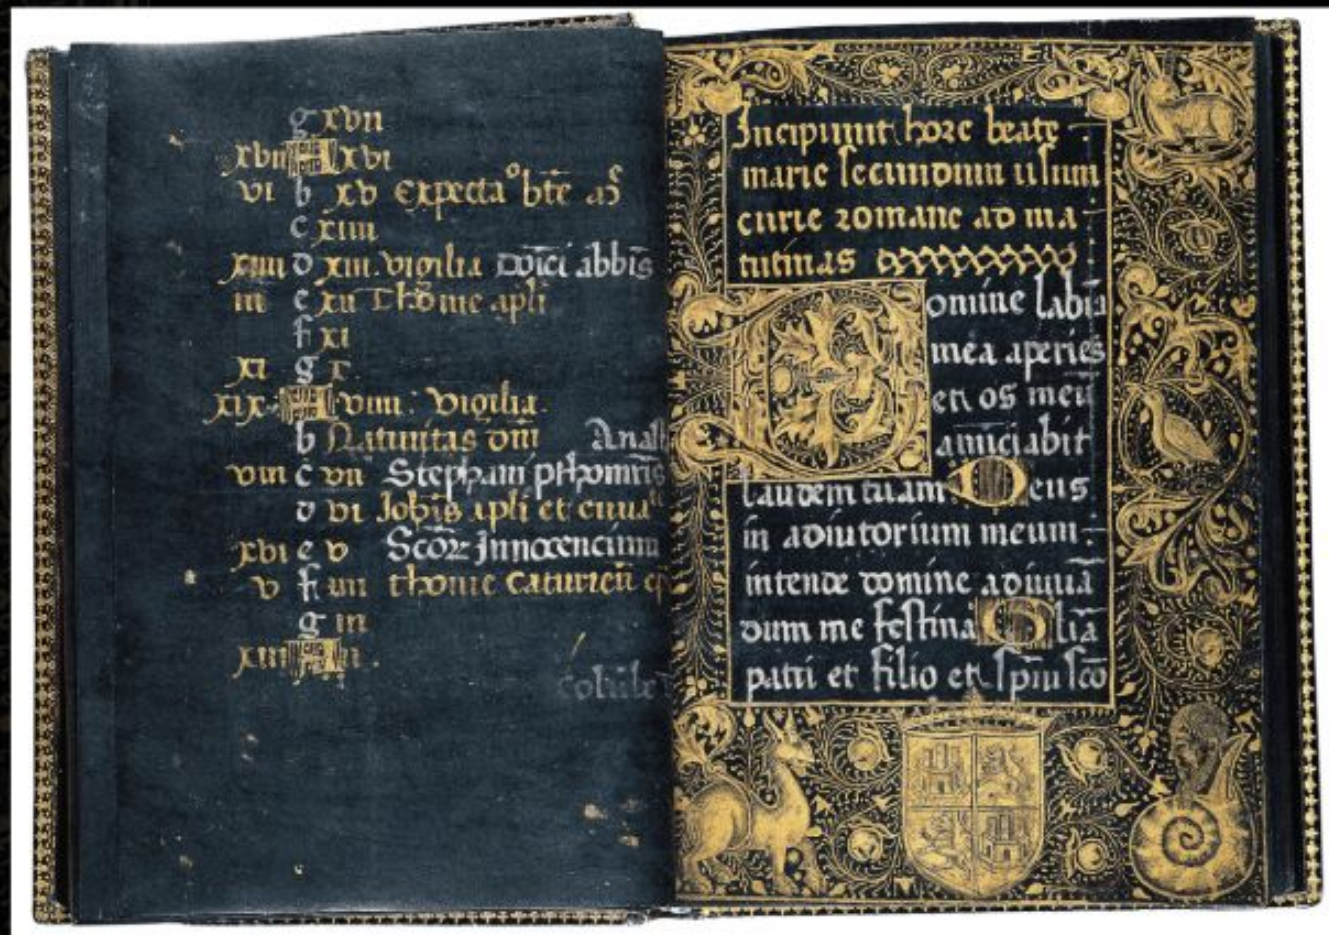 g xvii
xvii A xvi
vi b xv Expectaᵒ bt̄e
c xiiii
xiiii d xiii. vigilia dn̄ici abbīs
iii e xii Thome apl̄i
f xi
xi g x.
xix A viiii. Vigilia.
b Natiuitas dn̄i Anast
viii c vii Stephani
d vi Joh̄is apl̄i et euua
xvi e v Sc̄oꝝ Innocencium
v f iiii thome
g iii
xiii A ii.
Incipiunt hore beate
marie secundum usum
curie romane ad ma
tutinas
Domine labia
mea aperies
et os meū
anūciabit
laudem tuam Deus
in adiutorium meum
intende domine adiuuā
dum me festina Gl̄ia
patri et filio et sp̄iu sc̄o